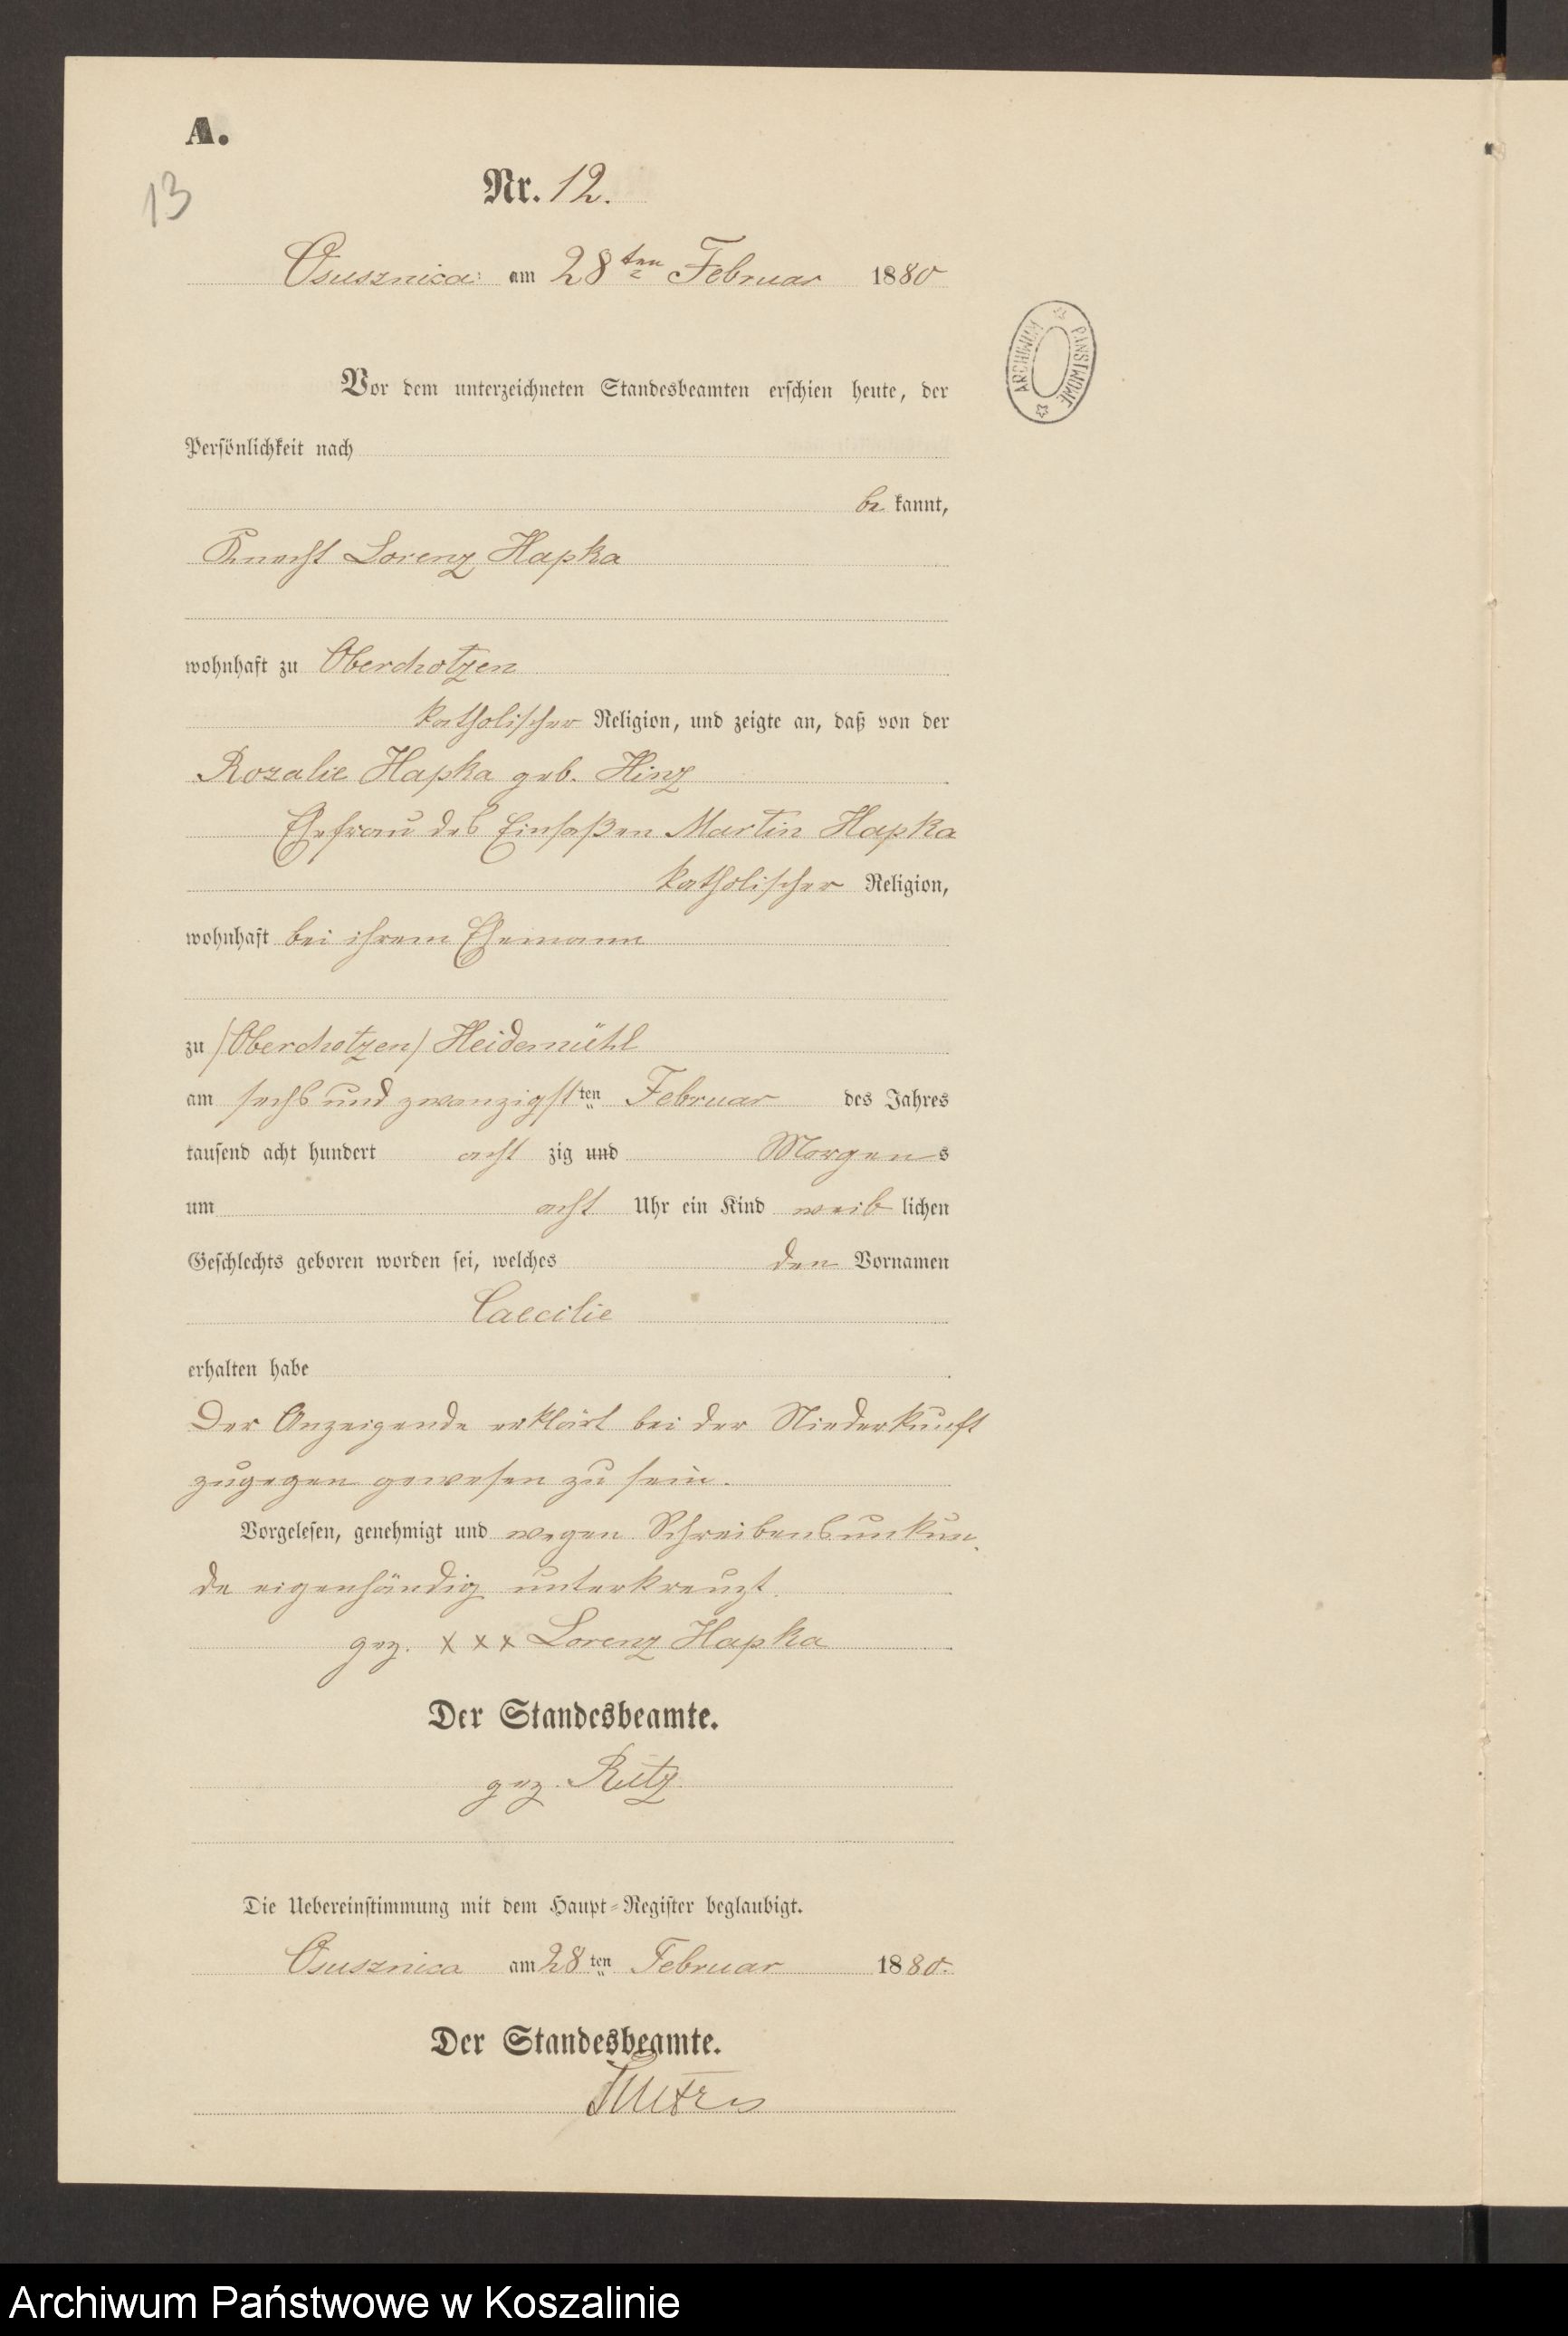 A.
13
Nr. 12.
Osusznica am 28ten Februar 1880
ARCHIWUM PAŃSTWOWE
Vor dem unterzeichneten Standesbeamten erschien heute, der
Persönlichkeit nach
be kannt,
Knecht Lorenz Hapka
wohnhaft zu Oberchotzen
katholischer Religion, und zeigte an, daß von der
Rozalie Hapka geb. Hinz
Ehefrau des Einsaßen Martin Hapka
katholischer Religion,
wohnhaft bei ihrem Ehemann
zu /Oberchotzen/ Heidemühl
am sechs und zwanzigst ten Februar des Jahres
tausend acht hundert acht zig und Morgens
um acht Uhr ein Kind weib lichen
Geschlechts geboren worden sei, welches den Vornamen
Caecilie
erhalten habe
Der Anzeigende erklärt bei der Niederkunft
zugegen gewesen zu sein.
Vorgelesen, genehmigt und wegen Schreibensunkun-
de eigenhändig unterkreuzt.
gez. x x x Lorenz Hapka
Der Standesbeamte.
gez. Rutz
Die Uebereinstimmung mit dem Haupt-Register beglaubigt.
Osusznica am 28ten Februar 1880.
Der Standesbeamte.
Archiwum Państwowe w Koszalinie